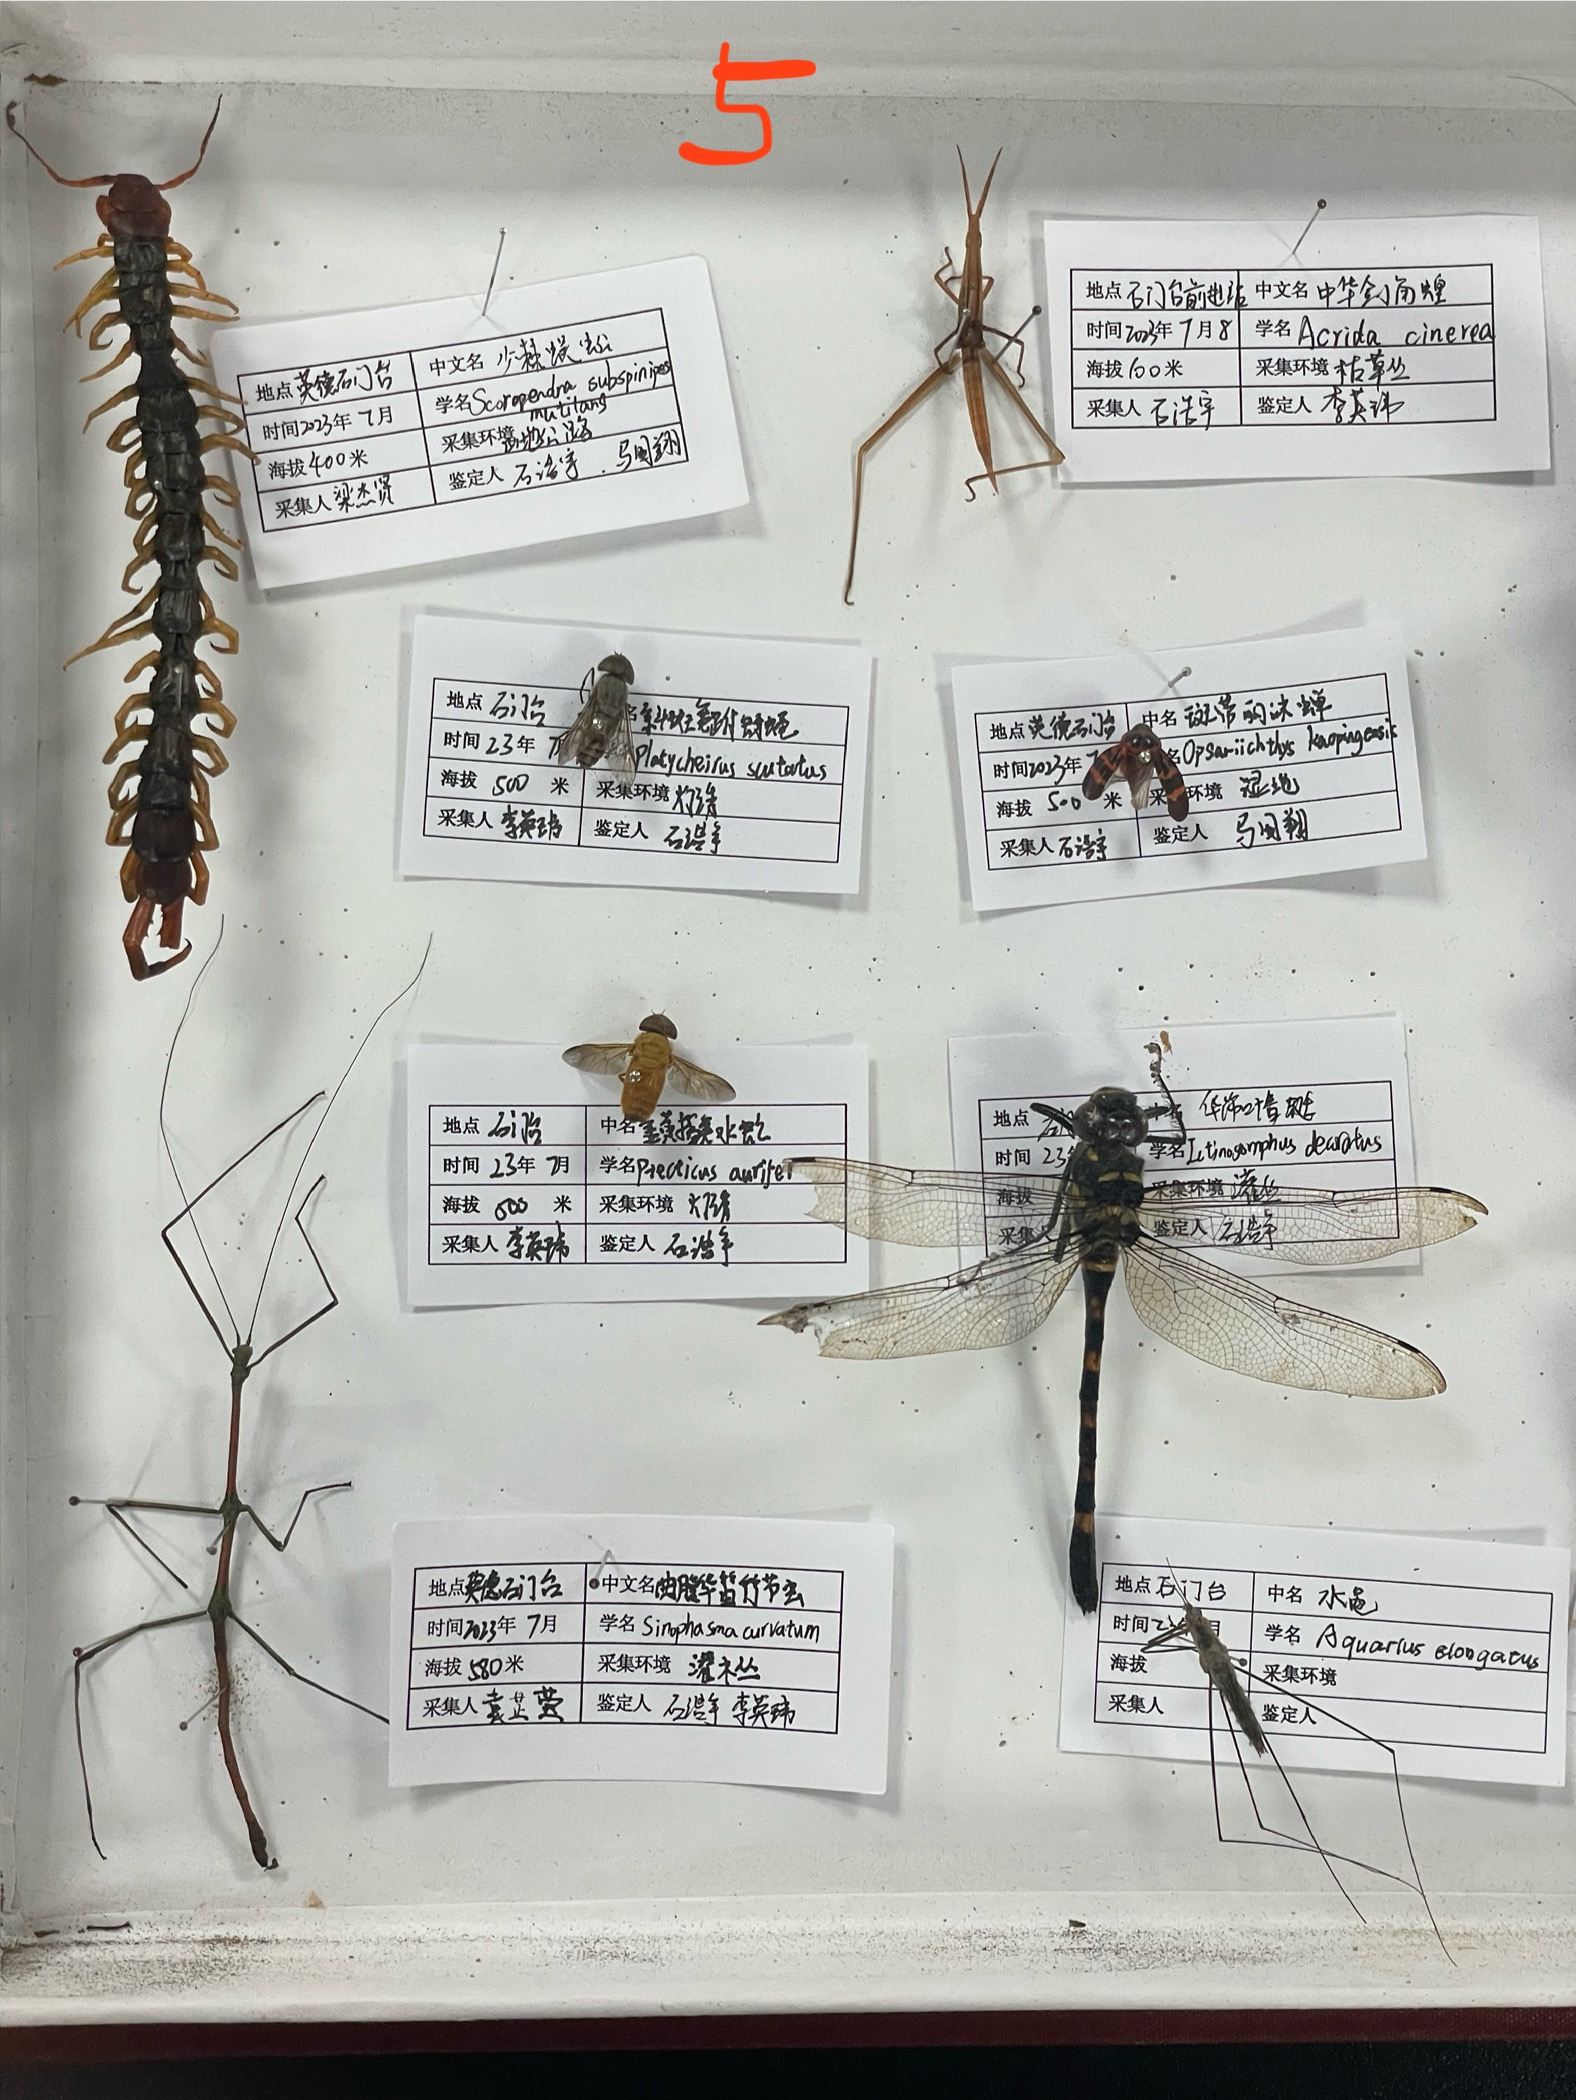 5
地点 英德石门台 中文名 少棘蜈蚣
时间2023年 7月 学名Scoropendra subspinipes mutilans
海拔400米 采集环境 公路
采集人 梁杰贤 鉴定人 石浩宇 . 马国翔
地点 石门台前进站 中文名 中华剑角蝗
时间2023年 7月8 学名 Acrida cinerea
海拔 60米 采集环境 枯草丛
采集人 石浩宇 鉴定人 李英玮
地点 石门台 蚜蝇
时间 23年 Platycheirus scutatus
海拔 500 米 采集环境 灯诱
采集人 李英玮 鉴定人 石浩宇
地点 英德石门台 中名 斑带丽沫蝉
时间2023年 7 名Opsariichthys kaopingensis
海拔 500 米 采 环境 湿地
采集人 石浩宇 鉴定人 马国翔
地点 石门台 中名 金黄指突水虻
时间 23年 7月 学名Ptecticus aurifer
海拔 600 米 采集环境 灯诱
采集人 李英玮 鉴定人 石浩宇
地点 石 名 华饰叶春蜓
时间 23 学名Ictinogomphus decoratus
海拔 采集环境 灌丛
采集人 鉴定人 石浩宇
地点英德石门台 中文名曲腹华笛竹节虫
时间2023年 7月 学名 Sinophasma curvatum
海拔 580米 采集环境 灌木丛
采集人 袁芷莹 鉴定人 石浩宇 李英玮
地点 石门台 中名 水黾
时间 23 月 学名 Aquarius elongatus
海拔 采集环境
采集人 鉴定人